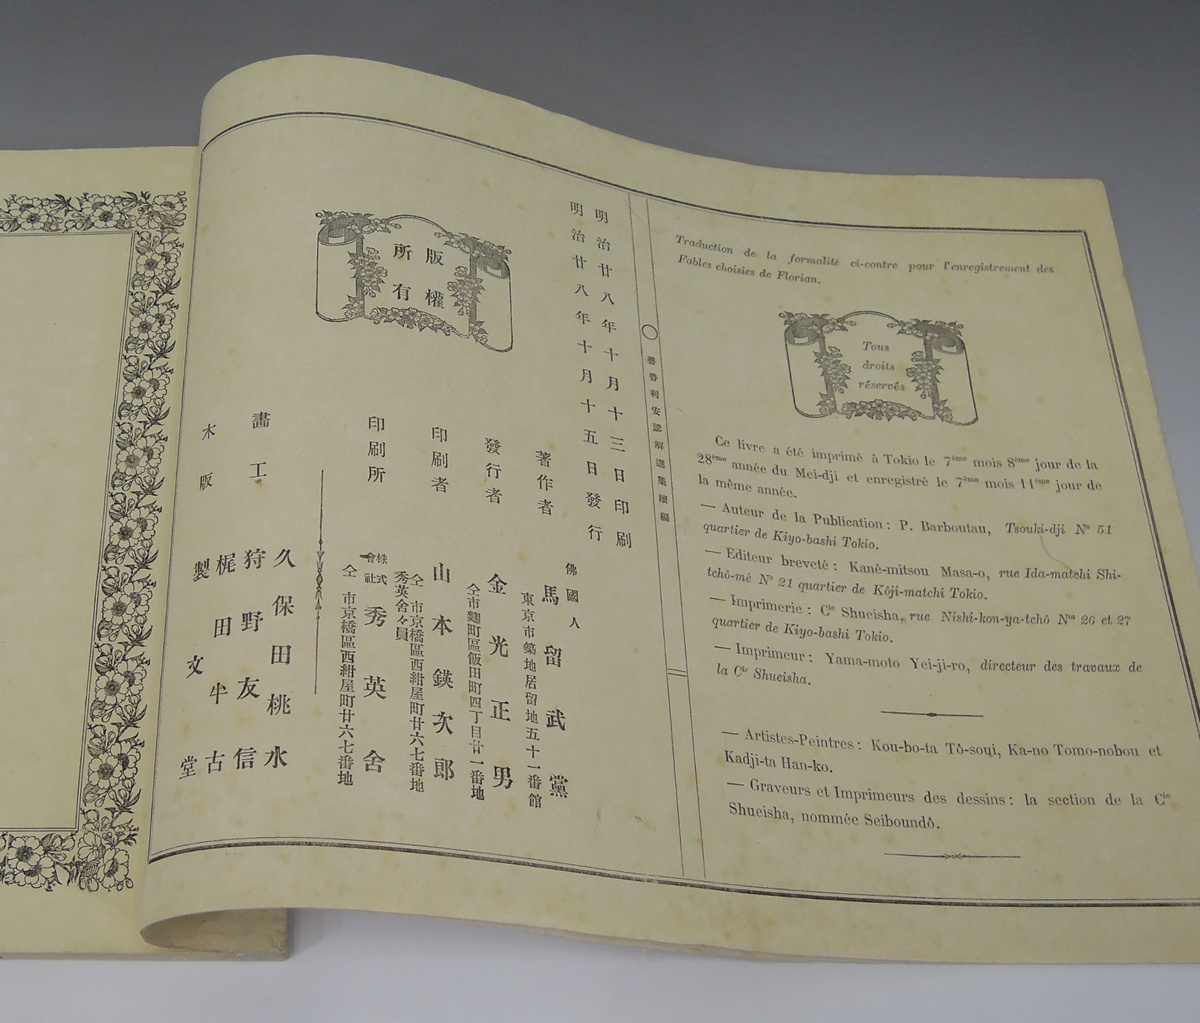 明治廿八年十月十三日印刷
明治廿八年十月十五日發行
版權
所有
著作者
佛國人
馬留武黨
東京市築地居留地五十一番館
發行者
金光正男
仝市麴町區飯田町四丁目廿一番地
印刷者
山本鍈次郎
仝市京橋區西紺屋町廿六七番地
秀英舍々員
印刷所
株式
會社
秀英舍
仝市京橋區西紺屋町廿六七番地
畫工
久保田桃水
狩野友信
梶田半古
木版
製文堂
Traduction de la formalité ci-contre pour l'enregistrement des
Fables choisies de Florian.
Tous
droits
réservés
Ce livre a été imprimé à Tokio le 7ème mois 8ème jour de la
28ème année du Mei-dji et enregistré le 7ème mois 11ème jour de
la même année.
— Auteur de la Publication : P. Barboutau, Tsouki-dji No 51
quartier de Kiyo-bashi Tokio.
— Editeur breveté : Kané-mitsou Masa-o, rue Ida-matchi Shi-
tchô-mé No 21 quartier de Kôji-matchi Tokio.
— Imprimerie : Cie Shueisha, rue Nishi-kon-ya-tchô Nos 26 et 27
quartier de Kiyo-bashi Tokio.
— Imprimeur : Yama-moto Yei-ji-ro, directeur des travaux de
la Cie Shueisha.
— Artistes-Peintres : Kou-bo-ta Tô-soui, Ka-no Tomo-nobou et
Kadji-ta Han-ko.
— Graveurs et Imprimeurs des dessins : la section de la Cie
Shueisha, nommée Seiboundô.